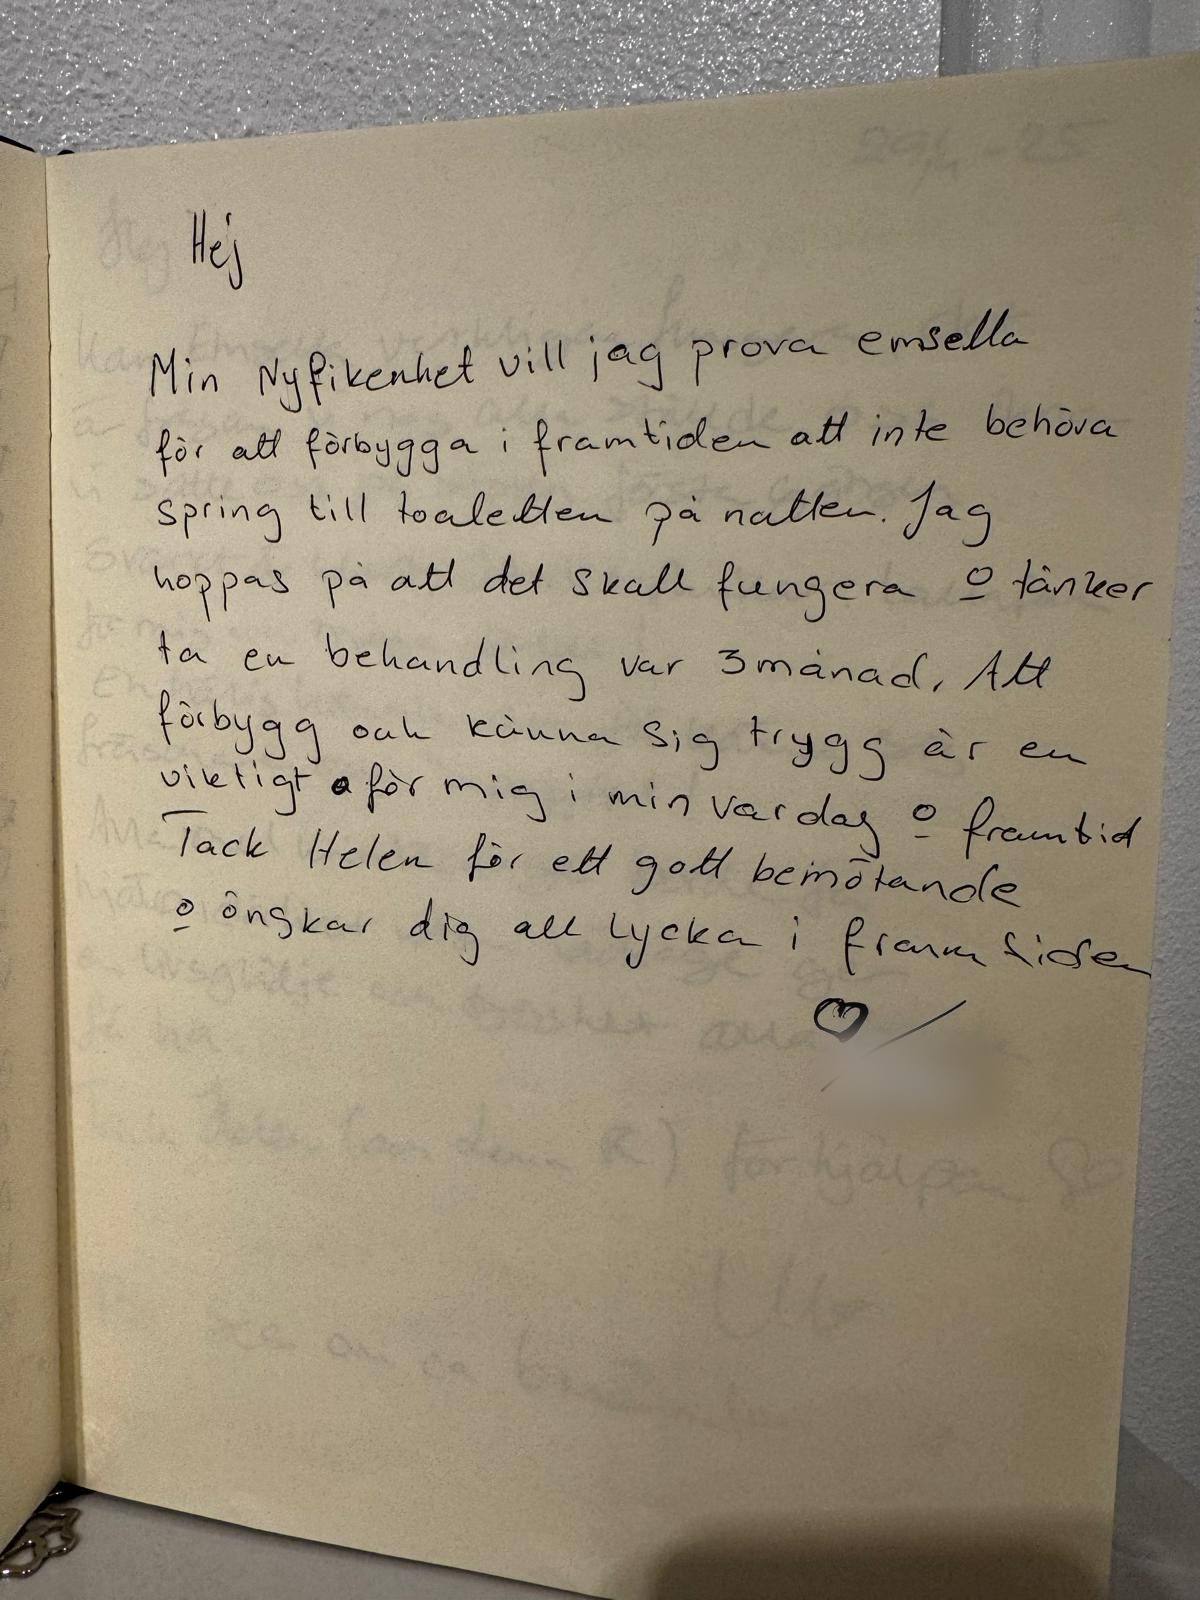 Hej
Min Nyfikenhet vill jag prova emsella
för att förbygga i framtiden att inte behöva
spring till toaletten på natten. Jag
hoppas på att det skall fungera o tänker
ta en behandling var 3månad. Att
förbygg och känna sig trygg är en
viktigt för mig i min vardag o framtid
Tack Helen för ett gott bemötande
o öngskar dig all lycka i framtiden